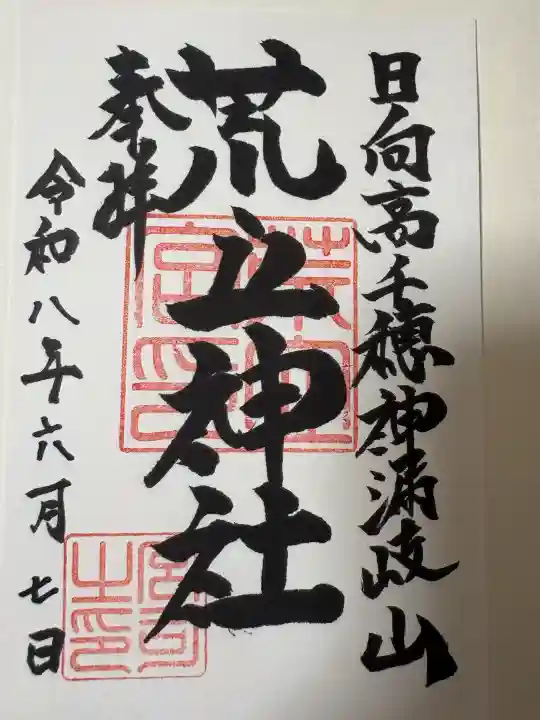 日向高千穂神漏岐山
荒立神社
奉拝
令和八年六月七日
宮司之印